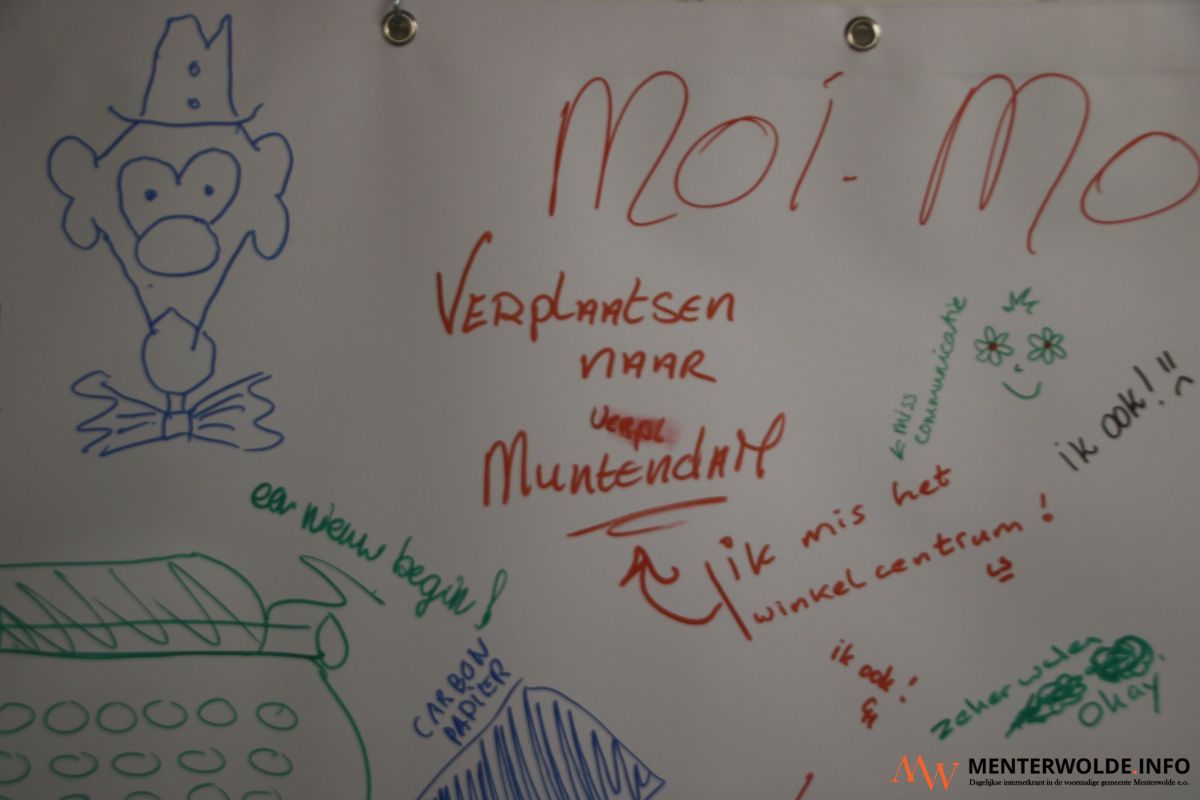 Moi - Mo
VERPLAATSEN
NAAR
VERPL
MUNTENDAM
← miss
communicatie
ik ook!!!
ik mis het
winkelcentrum!
een nieuw begin!
CARBON
PAPIER
ik ook!
&
zeker weten
okay
MW MENTERWOLDE.INFO
Dagelijkse internetkrant in de voormalige gemeente Menterwolde e.o.